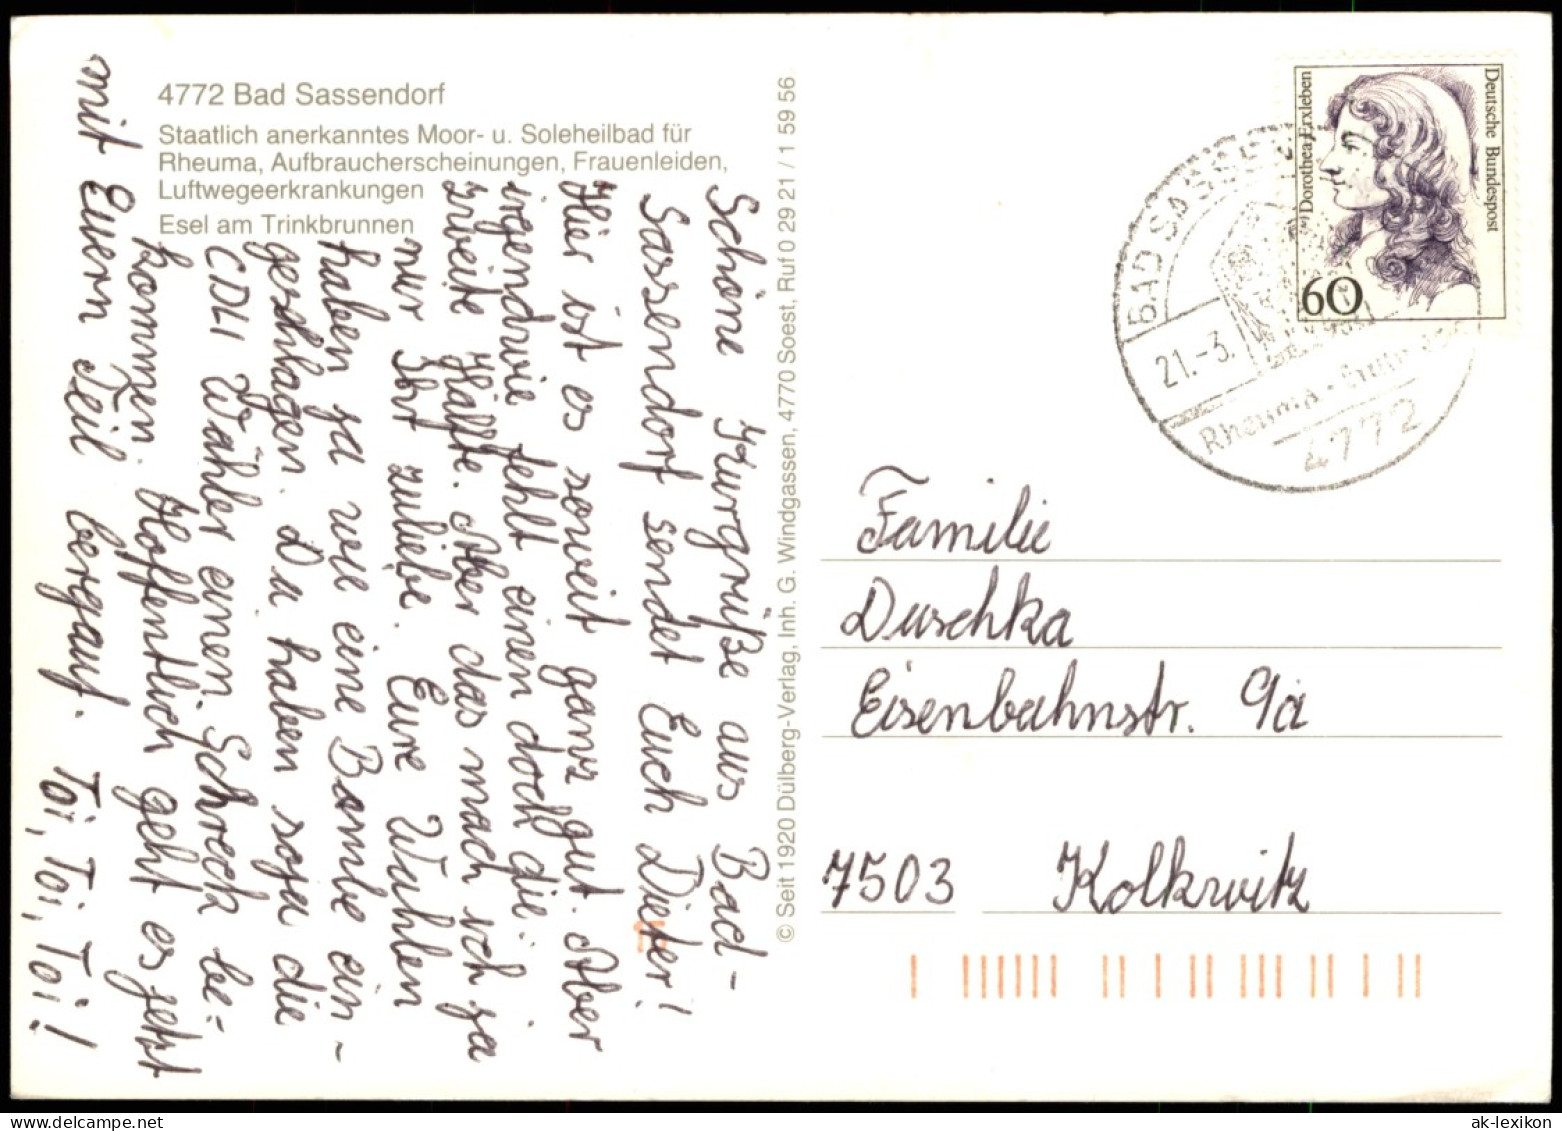 4772 Bad Sassendorf
Staatlich anerkanntes Moor- u. Soleheilbad für
Rheuma, Aufbraucherscheinungen, Frauenleiden,
Luftwegeerkrankungen
Esel am Trinkbrunnen
Schöne Kurgrüße aus Bad-
Sassendorf sendet Euch Dieter!
Hier ist es soweit ganz gut. Aber
irgendwie fehlt einen doch die
zweite Hälfte. Aber das mach ich ja
nur Ihr zuliebe. Eure Wahlen
haben ja wie eine Bombe ein-
geschlagen. Da haben soja die
CDU Wähler einen Schreck be=
kommen. Hoffentlich geht es jetzt
mit Euern Teil bergauf. Toi, Toi, Toi!
© Seit 1920 Dülberg-Verlag, Inh. G. Windgassen, 4770 Soest, Ruf 0 29 21 / 1 59 56
Deutsche Bundespost
Dorothea Erxleben
60
BAD SASSE
21.-3.
Rheuma-
4772
Familie
Duschka
Eisenbahnstr. 9a
7503 Kolkwitz
ak-lexikon